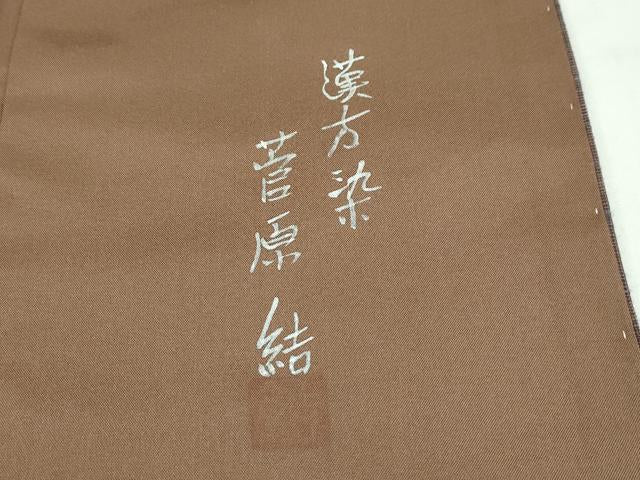 漢方染
菅原結